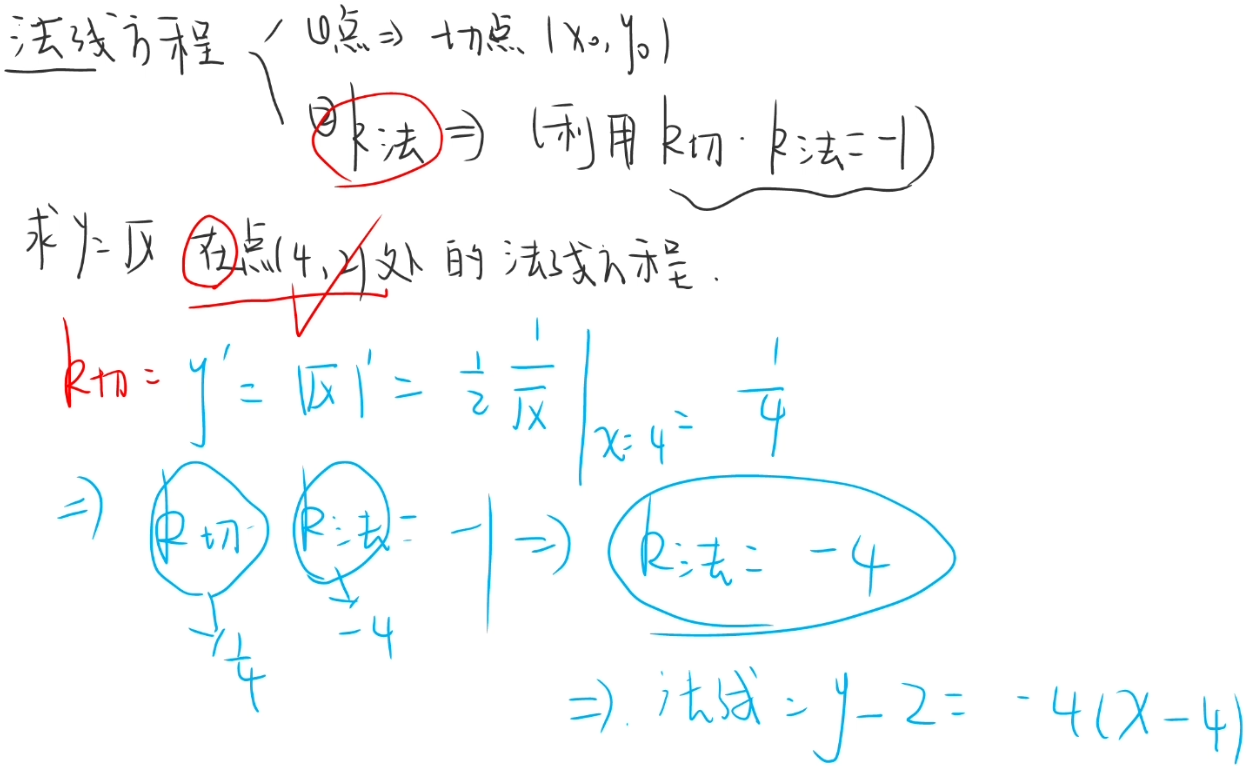 法线方程 ①点⇒ 切点(x₀,y₀)
②k法⇒ (利用k切·k法=-1)
求y=√x 在点(4,2)处的法线方程.
k切= y′= (√x)′= 1/2 1/√x |x=4 = 1/4
⇒ k切·k法= -1 ⇒ k法= -4
1/4 -4
⇒ 法线: y-2= -4(x-4)